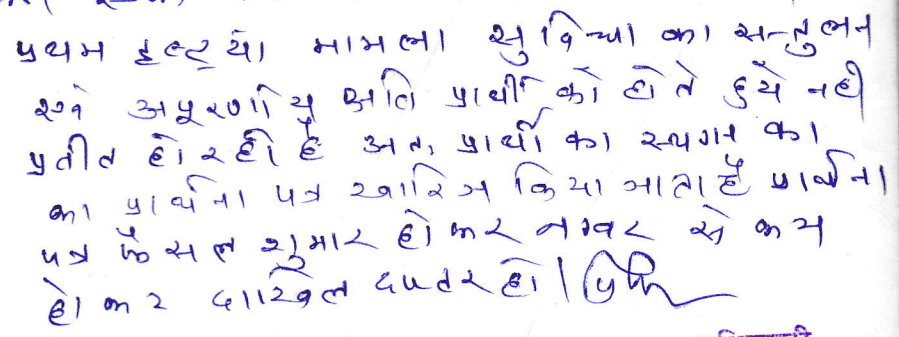 प्रथम दृष्टया मामला सुविधा का सन्तुलन
एवं अपूरणीय क्षति प्रार्थी को होते हुये नही
प्रतीत हो रही है अतः प्रार्थी का स्थगन का
का प्रार्थना पत्र खारिज किया जाता है प्रार्थना
पत्र फैसल शुमार होकर नम्बर से कम
होकर दाखिल दफ्तर हो।